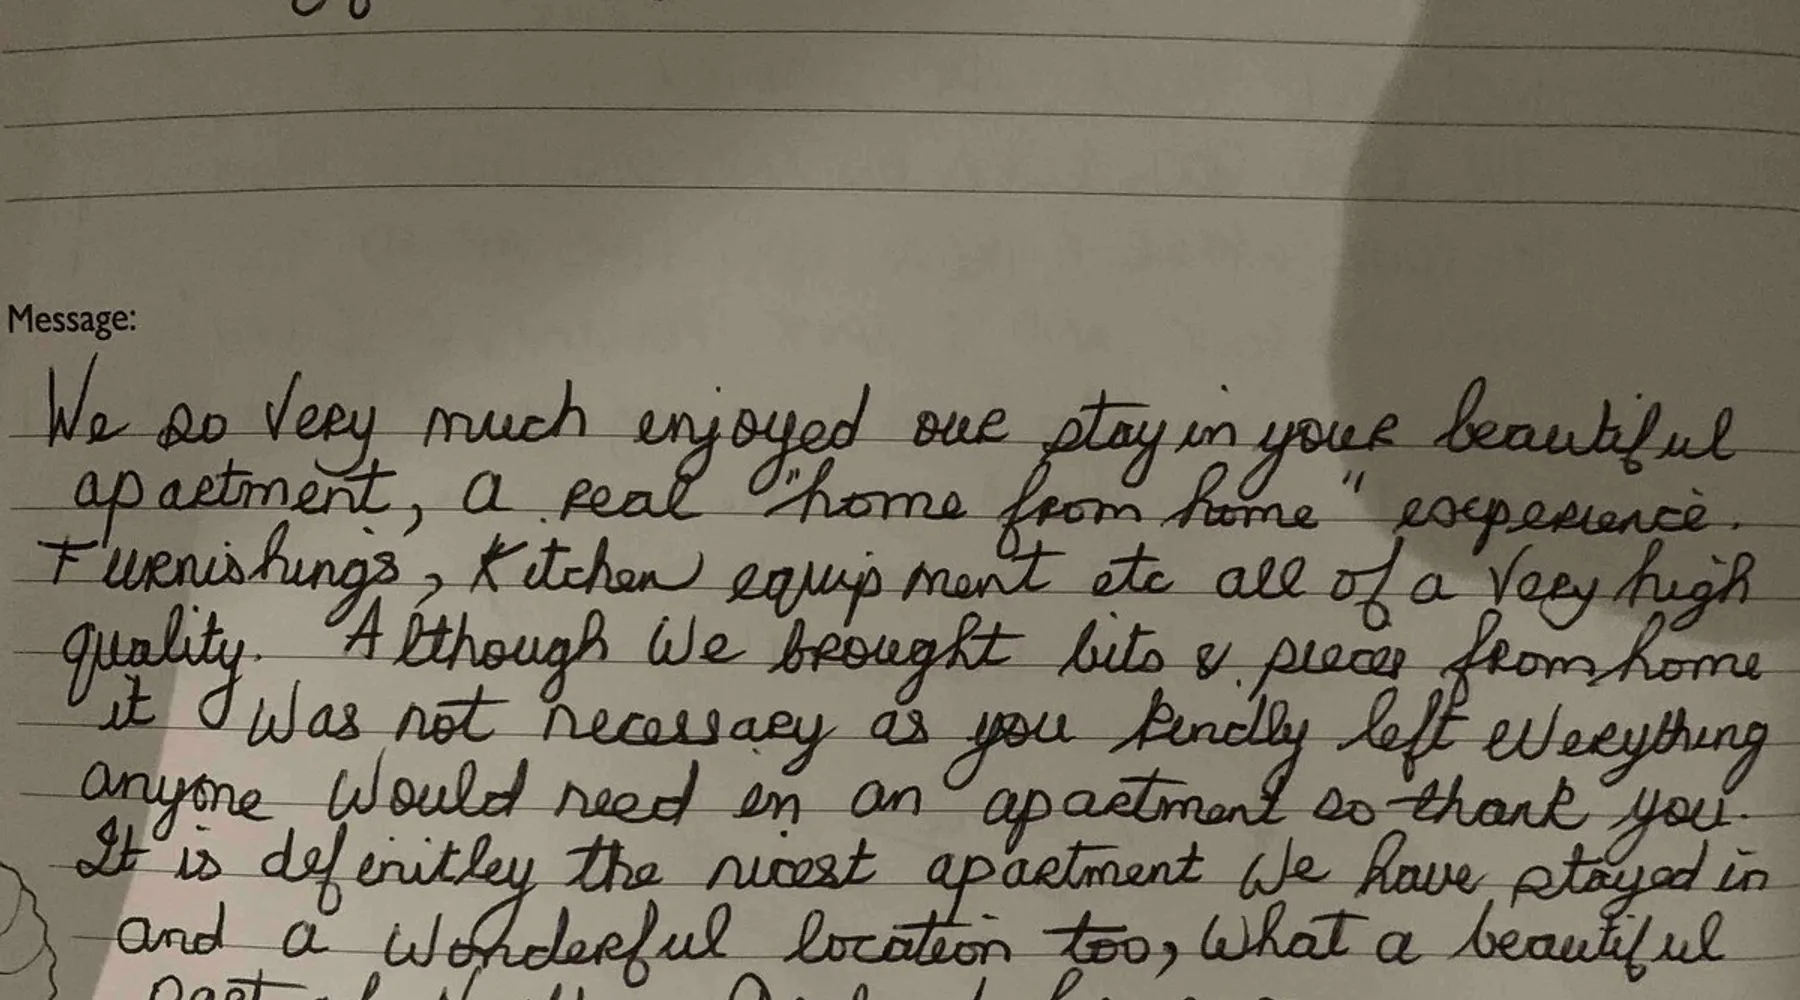 Message:
We so very much enjoyed our stay in your beautiful
apartment, a real "home from home" experience.
Furnishings, Kitchen equipment etc all of a very high
quality. Although we brought bits & pieces from home
it was not necessary as you kindly left everything
anyone would need in an apartment so thank you.
It is definitley the nicest apartment we have stayed in
and a wonderful location too, what a beautiful
part of